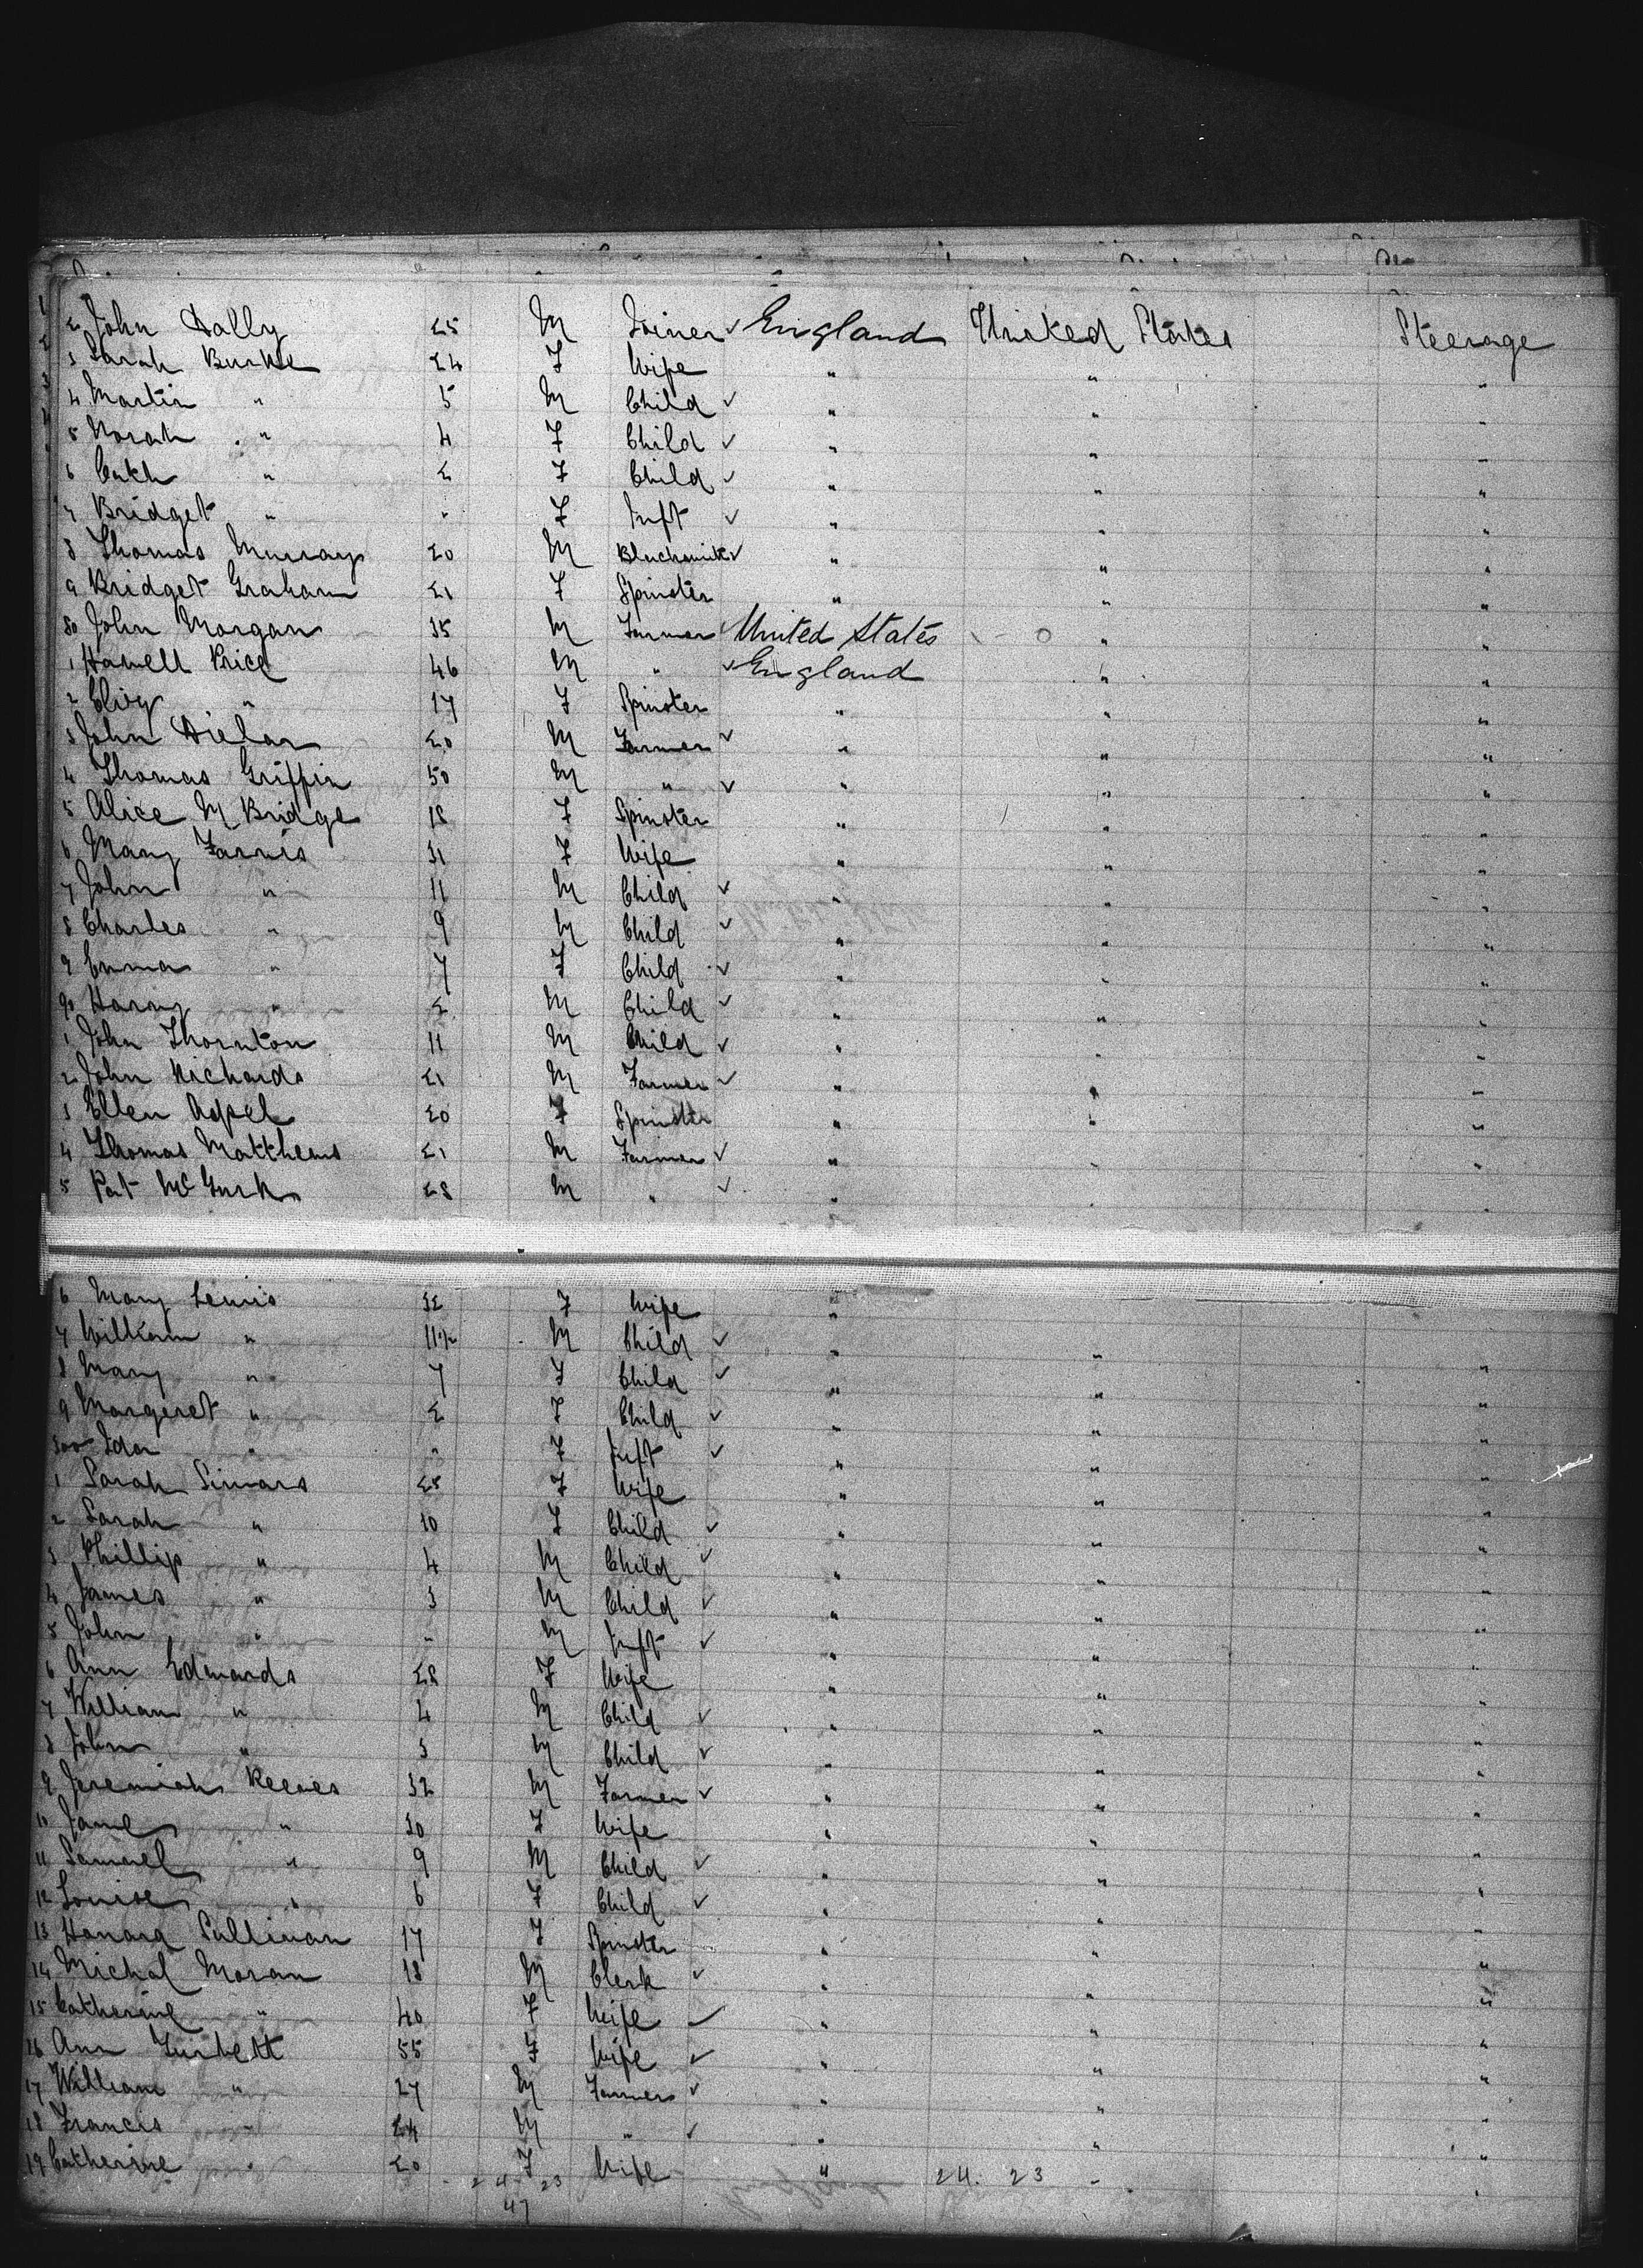 2 John Dally 25 M Joiner ✓ England United States Steerage
3 Sarah Burke 24 F Wife " " "
4 Martin " 5 M Child ✓ " " "
5 Norah " 4 F Child ✓ " " "
6 Cath " 2 F Child ✓ " " "
7 Bridget " " F Inft ✓ " " "
8 Thomas Murray 20 M ✓ " " "
9 Bridget Graham 21 F Spinster " " "
80 John Morgan 35 M Farmer ✓ United States 0 " "
1 Howell Price 46 M " ✓ England " "
2 " 17 F Spinster " " "
3 John 20 M Farmer ✓ " " "
4 Thomas Griffin 50 M " ✓ " " "
5 Alice Mc Bridge 18 F Spinster " " "
6 Mary Farris 31 F Wife " " "
7 John " 11 M Child ✓ " " "
8 Charles " 9 M Child ✓ " " "
9 Emma " 7 F Child ✓ " " "
90 Harry " 2 M Child ✓ " " "
1 John Thornton 11 M Child ✓ " " "
2 John Richards 21 M Farmer ✓ " " "
3 Ellen Aspel 20 F Spinster " " "
4 Thomas Matthews 21 M Farmer ✓ " " "
5 Pat McGurk 28 M " ✓ " " "
6 Mary Lewis 32 F Wife "
7 William " 11 M Child ✓ " " "
8 Mary " 7 F Child ✓ " " "
9 Margeret " 2 F Child ✓ " " "
300 Ida " " F Inft ✓ " " "
1 Sarah 25 F Wife " " "
2 Sarah " 10 F Child ✓ " " "
3 Phillip " 4 M Child ✓ " " "
4 James " 3 M Child ✓ " " "
5 John " " M Inft ✓ " " "
6 Ann Edwards 28 F Wife " " "
7 William " 4 M Child ✓ " " "
8 John " 3 M Child ✓ " " "
9 Jeremiah Reeves 32 M Farmer ✓ " " "
10 Jane " 30 F Wife " " "
11 Samuel " 9 M Child ✓ " " "
12 Louise " 6 F Child ✓ " " "
13 Honora Sullivan 17 F Spinster " " "
14 Michal Moran 18 M Clerk ✓ " " "
15 Catherine " 40 F Wife ✓ " " "
16 Ann 55 F Wife ✓ " " "
17 William " 27 M Farmer ✓ " " "
18 Francis " 24 M " ✓ " " "
19 Catherine " 20 F Wife " " "
24 23 24. 23
47